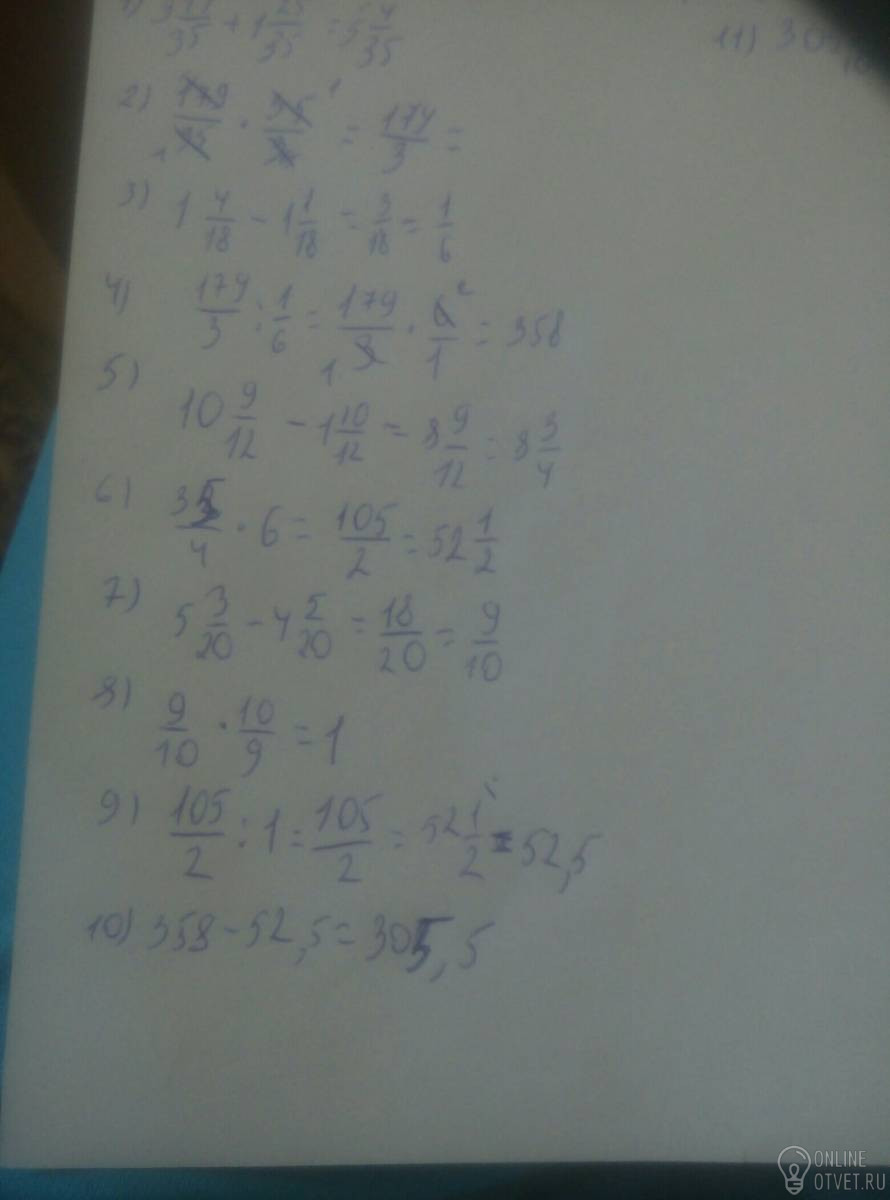 35 + 1 25/35 = 5 4/35
11) 30
2) 179/35 · 35/3 = 179/3 =
3) 1 4/18 - 1 1/18 = 3/18 = 1/6
4) 179/3 : 1/6 = 179/3 · 6/1 = 358
5) 10 9/12 - 1 10/12 = 8 9/12 = 8 3/4
6) 35/4 · 6 = 105/2 = 52 1/2
7) 5 3/20 - 4 5/20 = 18/20 = 9/10
8) 9/10 · 10/9 = 1
9) 105/2 : 1 = 105/2 = 52 1/2 = 52,5
10) 358 - 52,5 = 305,5
ONLINE
OTVET.RU